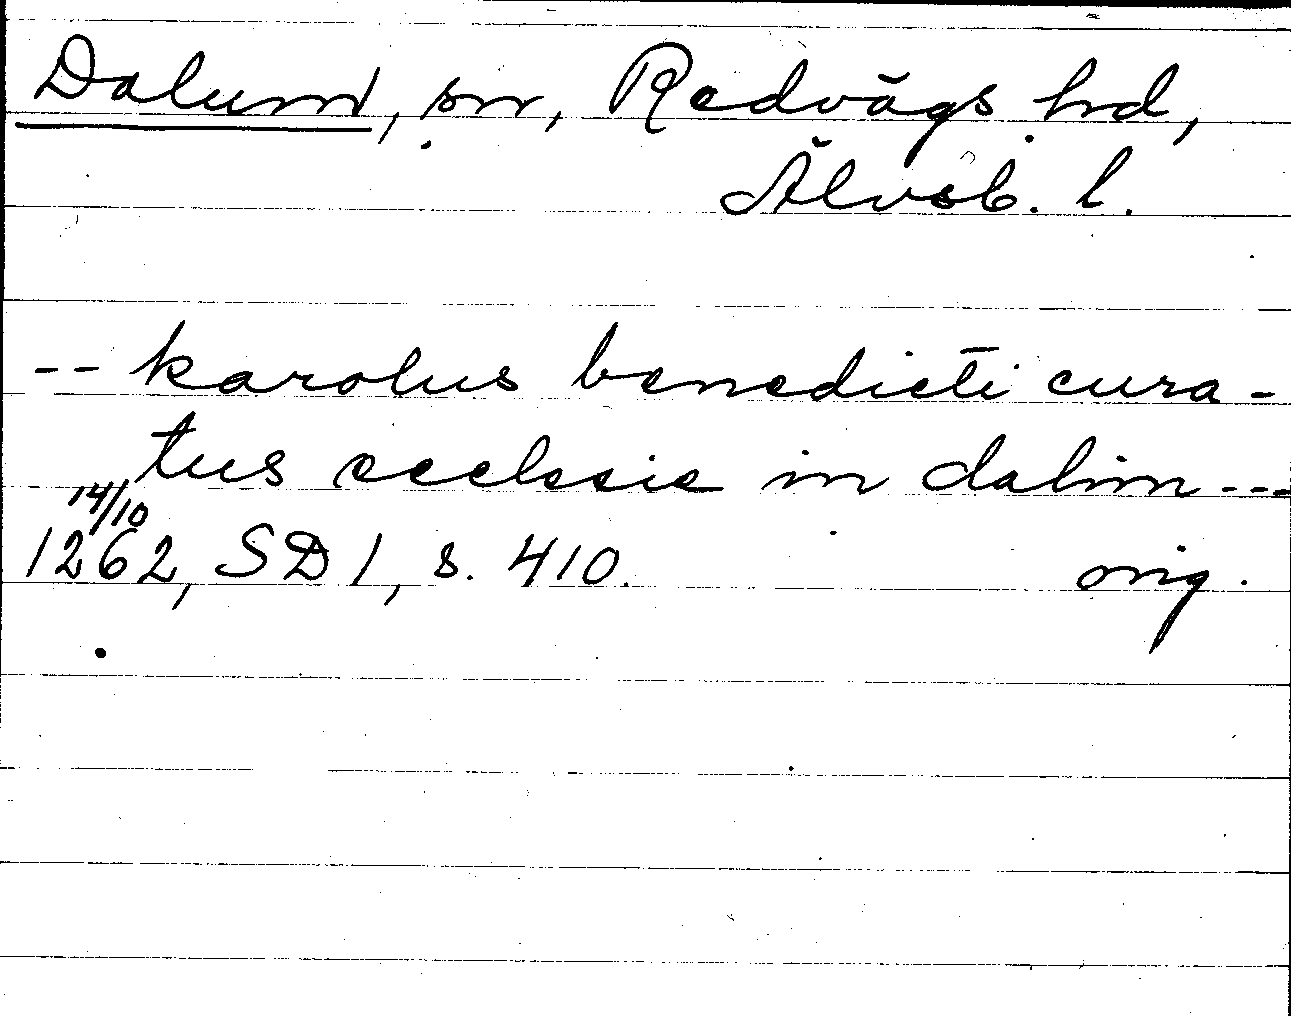 Dalum, sn, Redvägs hd,
Älvsb. l.
-- karolus benedicti cura-
tus ecclesie in dalim ---
14/10
1262, SD 1, s. 410. orig.